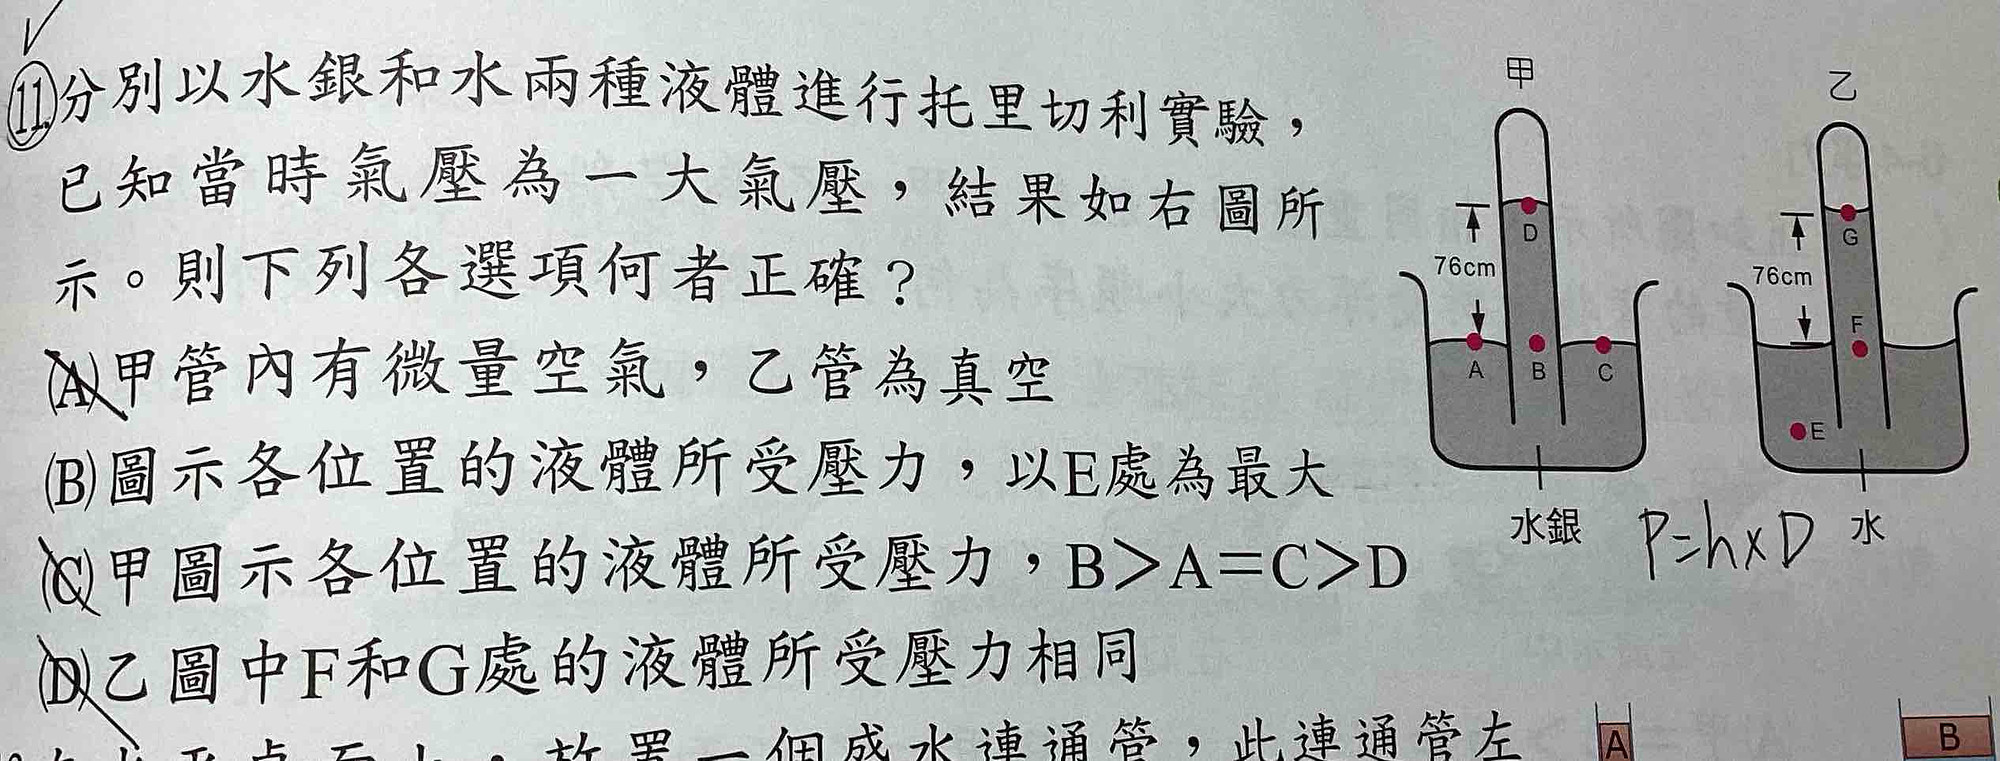 11.分別以水銀和水兩種液體進行托里切利實驗，
已知當時氣壓為一大氣壓，結果如右圖所
示。則下列各選項何者正確？
(A)甲管內有微量空氣，乙管為真空
(B)圖示各位置的液體所受壓力，以E處為最大
(C)甲圖示各位置的液體所受壓力，B＞A＝C＞D
(D)乙圖中F和G處的液體所受壓力相同
甲
D
76cm
A B C
水銀
乙
G
76cm
F
E
水
P=h×D
放置一個盛水連通管，此連通管左
A
B